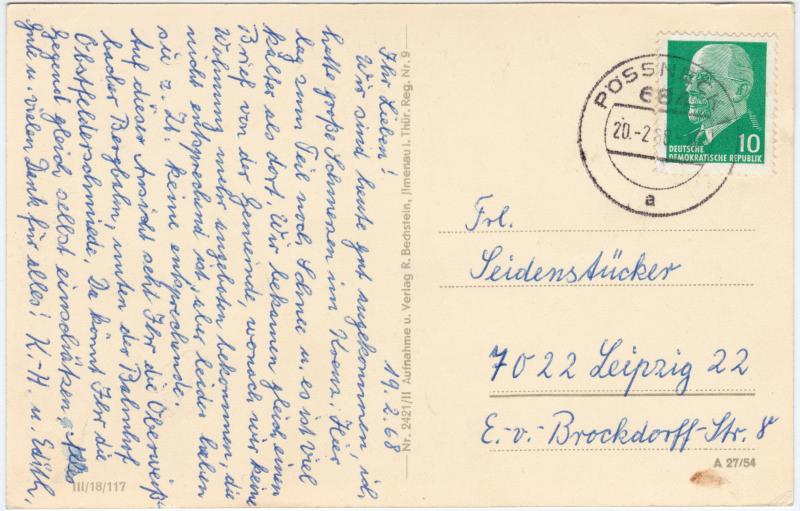 19.2.68
Ihr Lieben!
Wir sind heute gut angekommen, ich
hatte große Schmerzen im Kreuz. Hier
lag zum Teil noch Schnee u. es ist viel
kälter als dort. Wir bekamen gleich einen
Brief von der Gemeinde wonach wir keine
Wohnung mehr angeboten bekommen, die
nicht entsprechend ist, aber leider haben
sie z. Zt. keine entsprechende.
Auf dieser Ansicht seht Ihr die Oberweiß-
bacher Bergbahn, unten der Bahnhof
Obstfelderschmiede. Da könnt Ihr die
Gegend gleich selbst einschätzen. Alles
gute u. vielen Dank für alles! K.-H. u. Edith,
Nr. 2421/II Aufnahme u. Verlag R. Bechstein, Jlmenau i. Thür. Reg. Nr. 9
III/18/117
PÖSSNECK
684
20.-2.68
a
10
DEUTSCHE
DEMOKRATISCHE REPUBLIK
Frl.
Seidenstücker
7022 Leipzig 22
E.-v.-Brockdorff-Str. 8
A 27/54